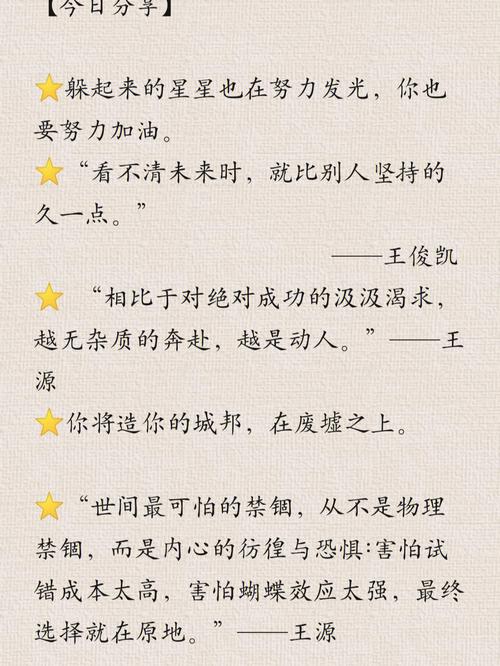 【今日分享】
⭐躲起来的星星也在努力发光，你也
要努力加油。
⭐“看不清未来时，就比别人坚持的
久一点。”
——王俊凯
⭐ “相比于对绝对成功的汲汲渴求，
越无杂质的奔赴，越是动人。”——王
源
⭐你将造你的城邦，在废墟之上。
⭐“世间最可怕的禁锢，从不是物理
禁锢，而是内心的彷徨与恐惧:害怕试
错成本太高，害怕蝴蝶效应太强，最终
选择就在原地。”——王源